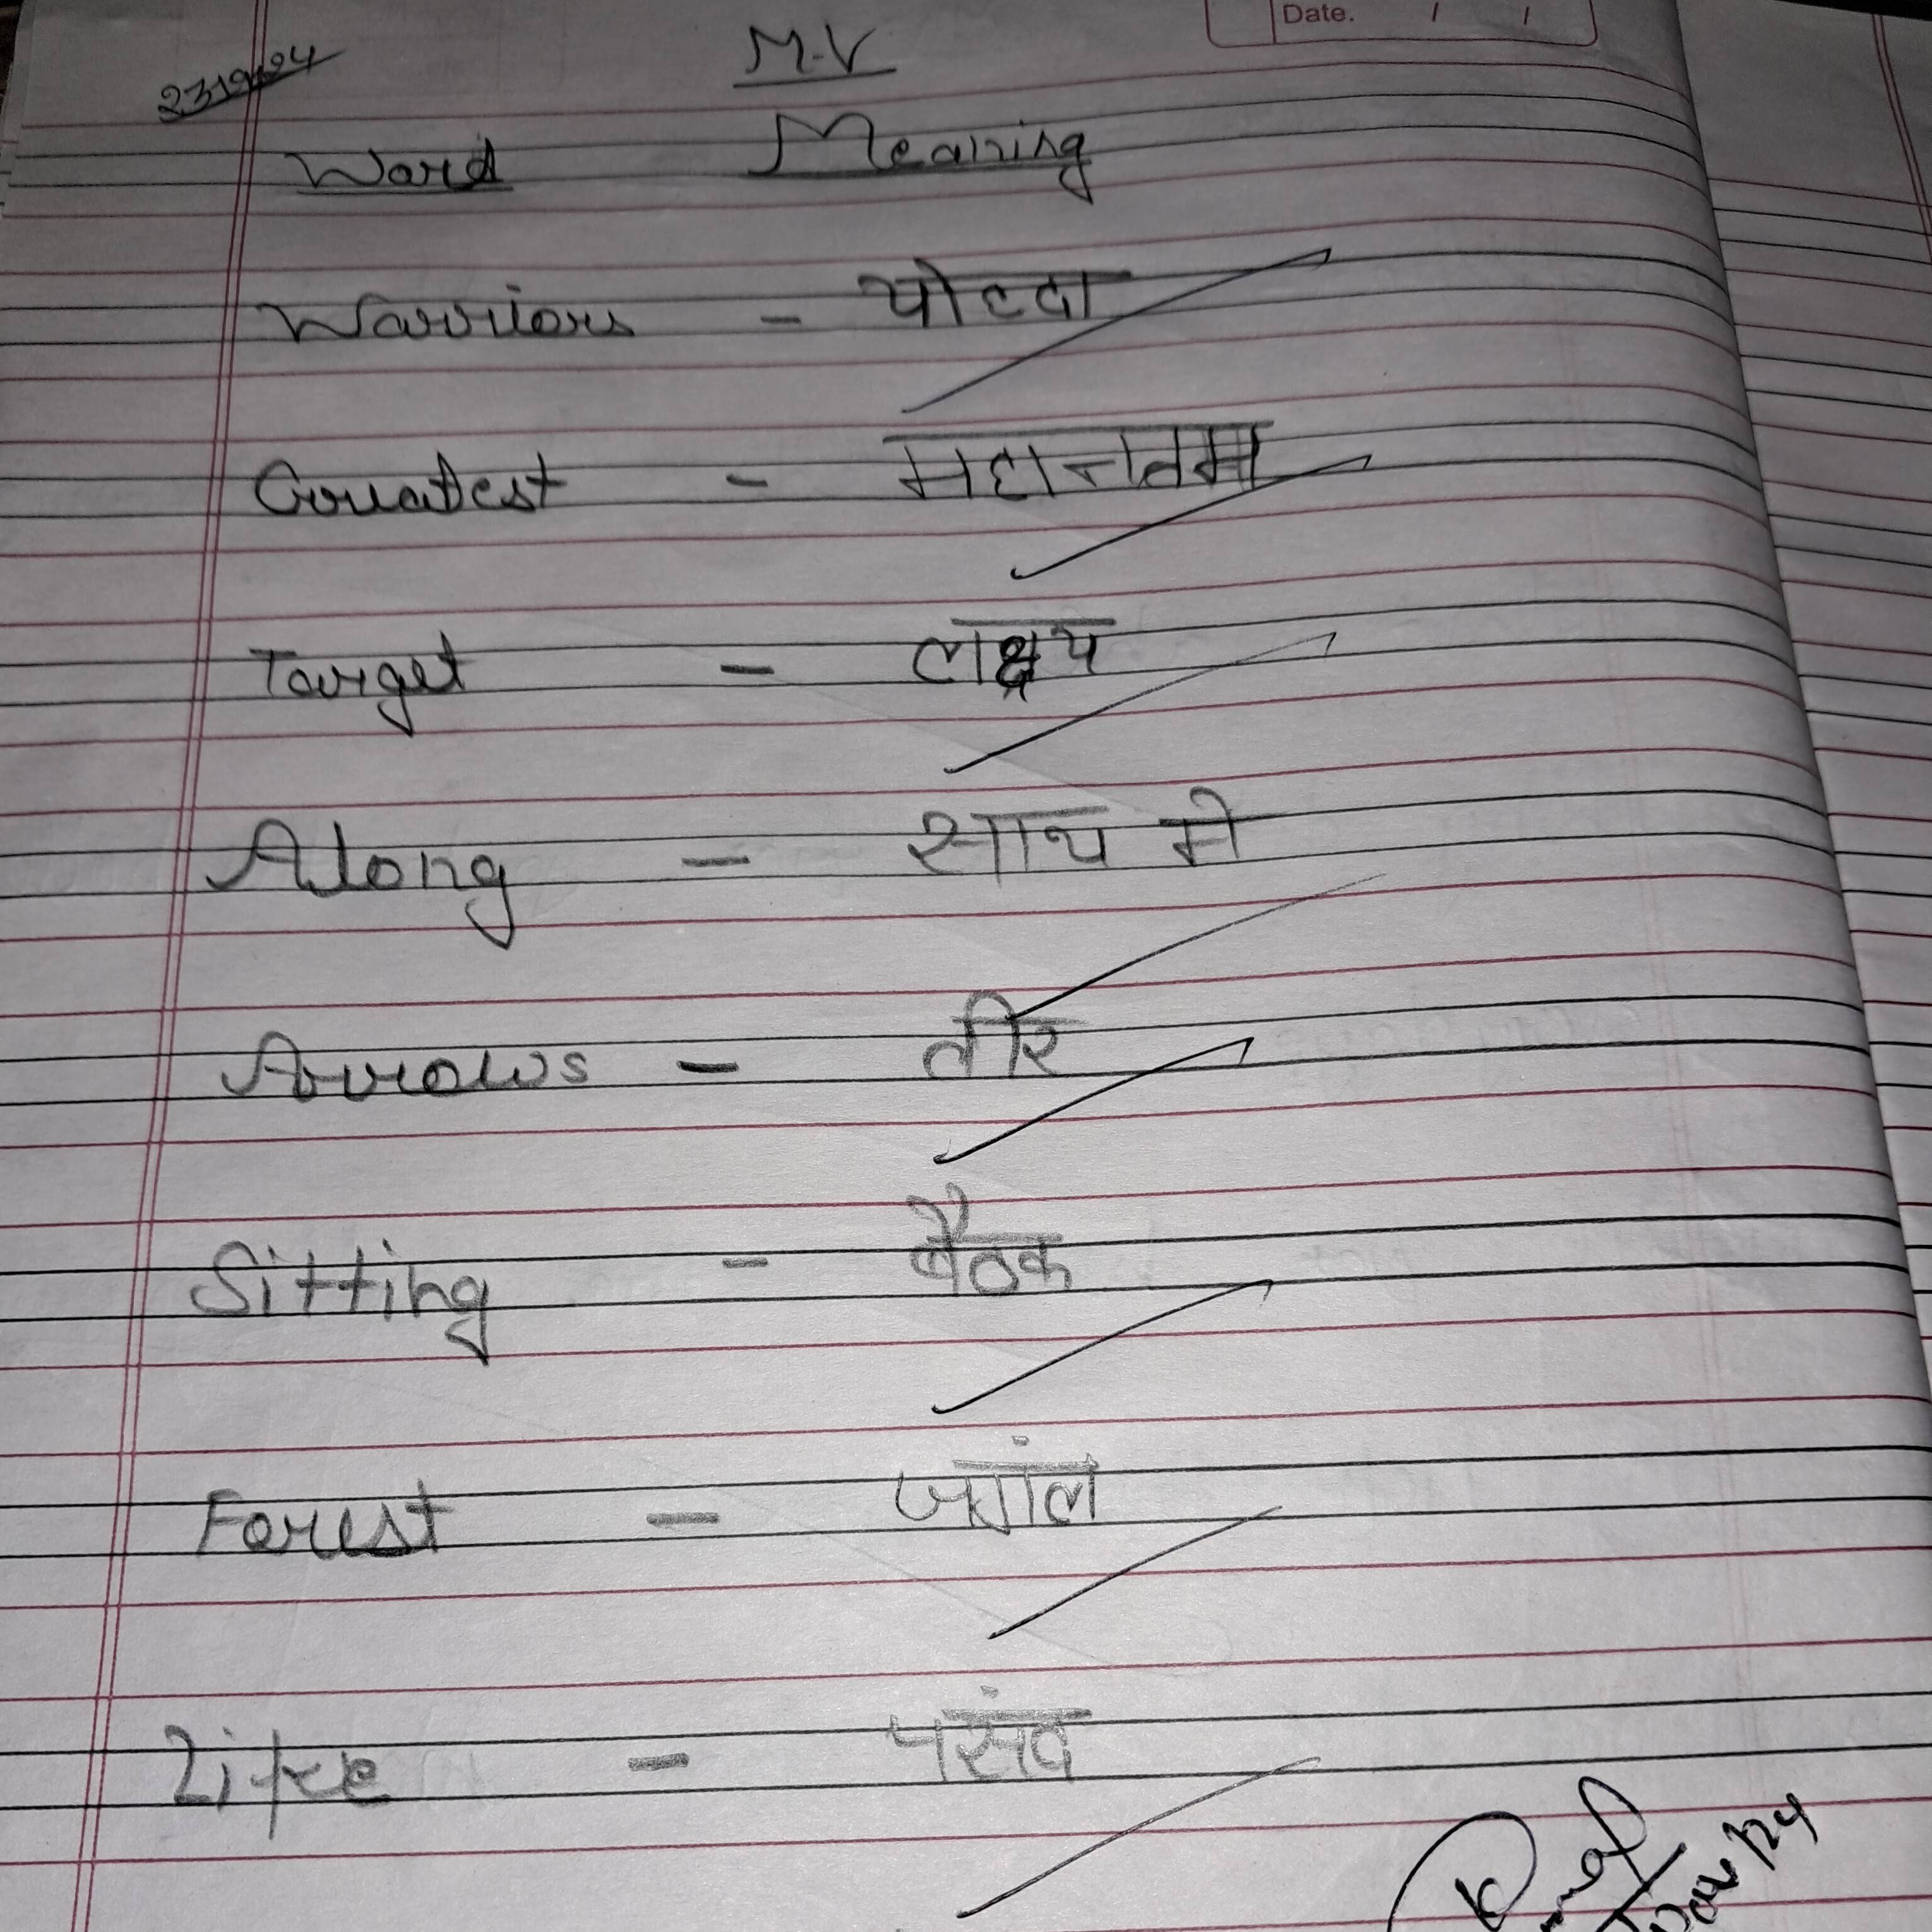 Date. / /
M.V
Word Meaning
Warriors - योद्दा
Greatest - महानतम
Target - लक्ष्य
Along - साथ मे
Arrows - तीर
Sitting - बैठक
Forest - जगंल
Like - पसंद